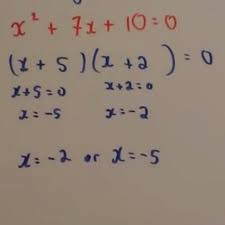 x² + 7x + 10 = 0
(x + 5)(x + 2) = 0
x+5=0 x+2=0
x = -5 x = -2
x = -2 or x = -5